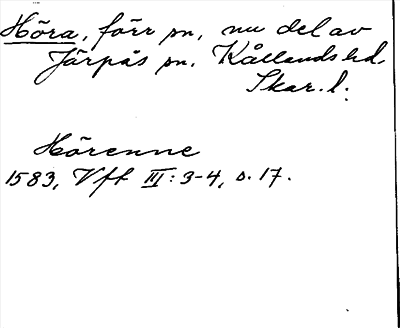 Höra, förr sn, nu del av
Järpås sn. Kållands hd.
Skar. l.
Hörenne
1583, Vff III: 3-4, s. 17.